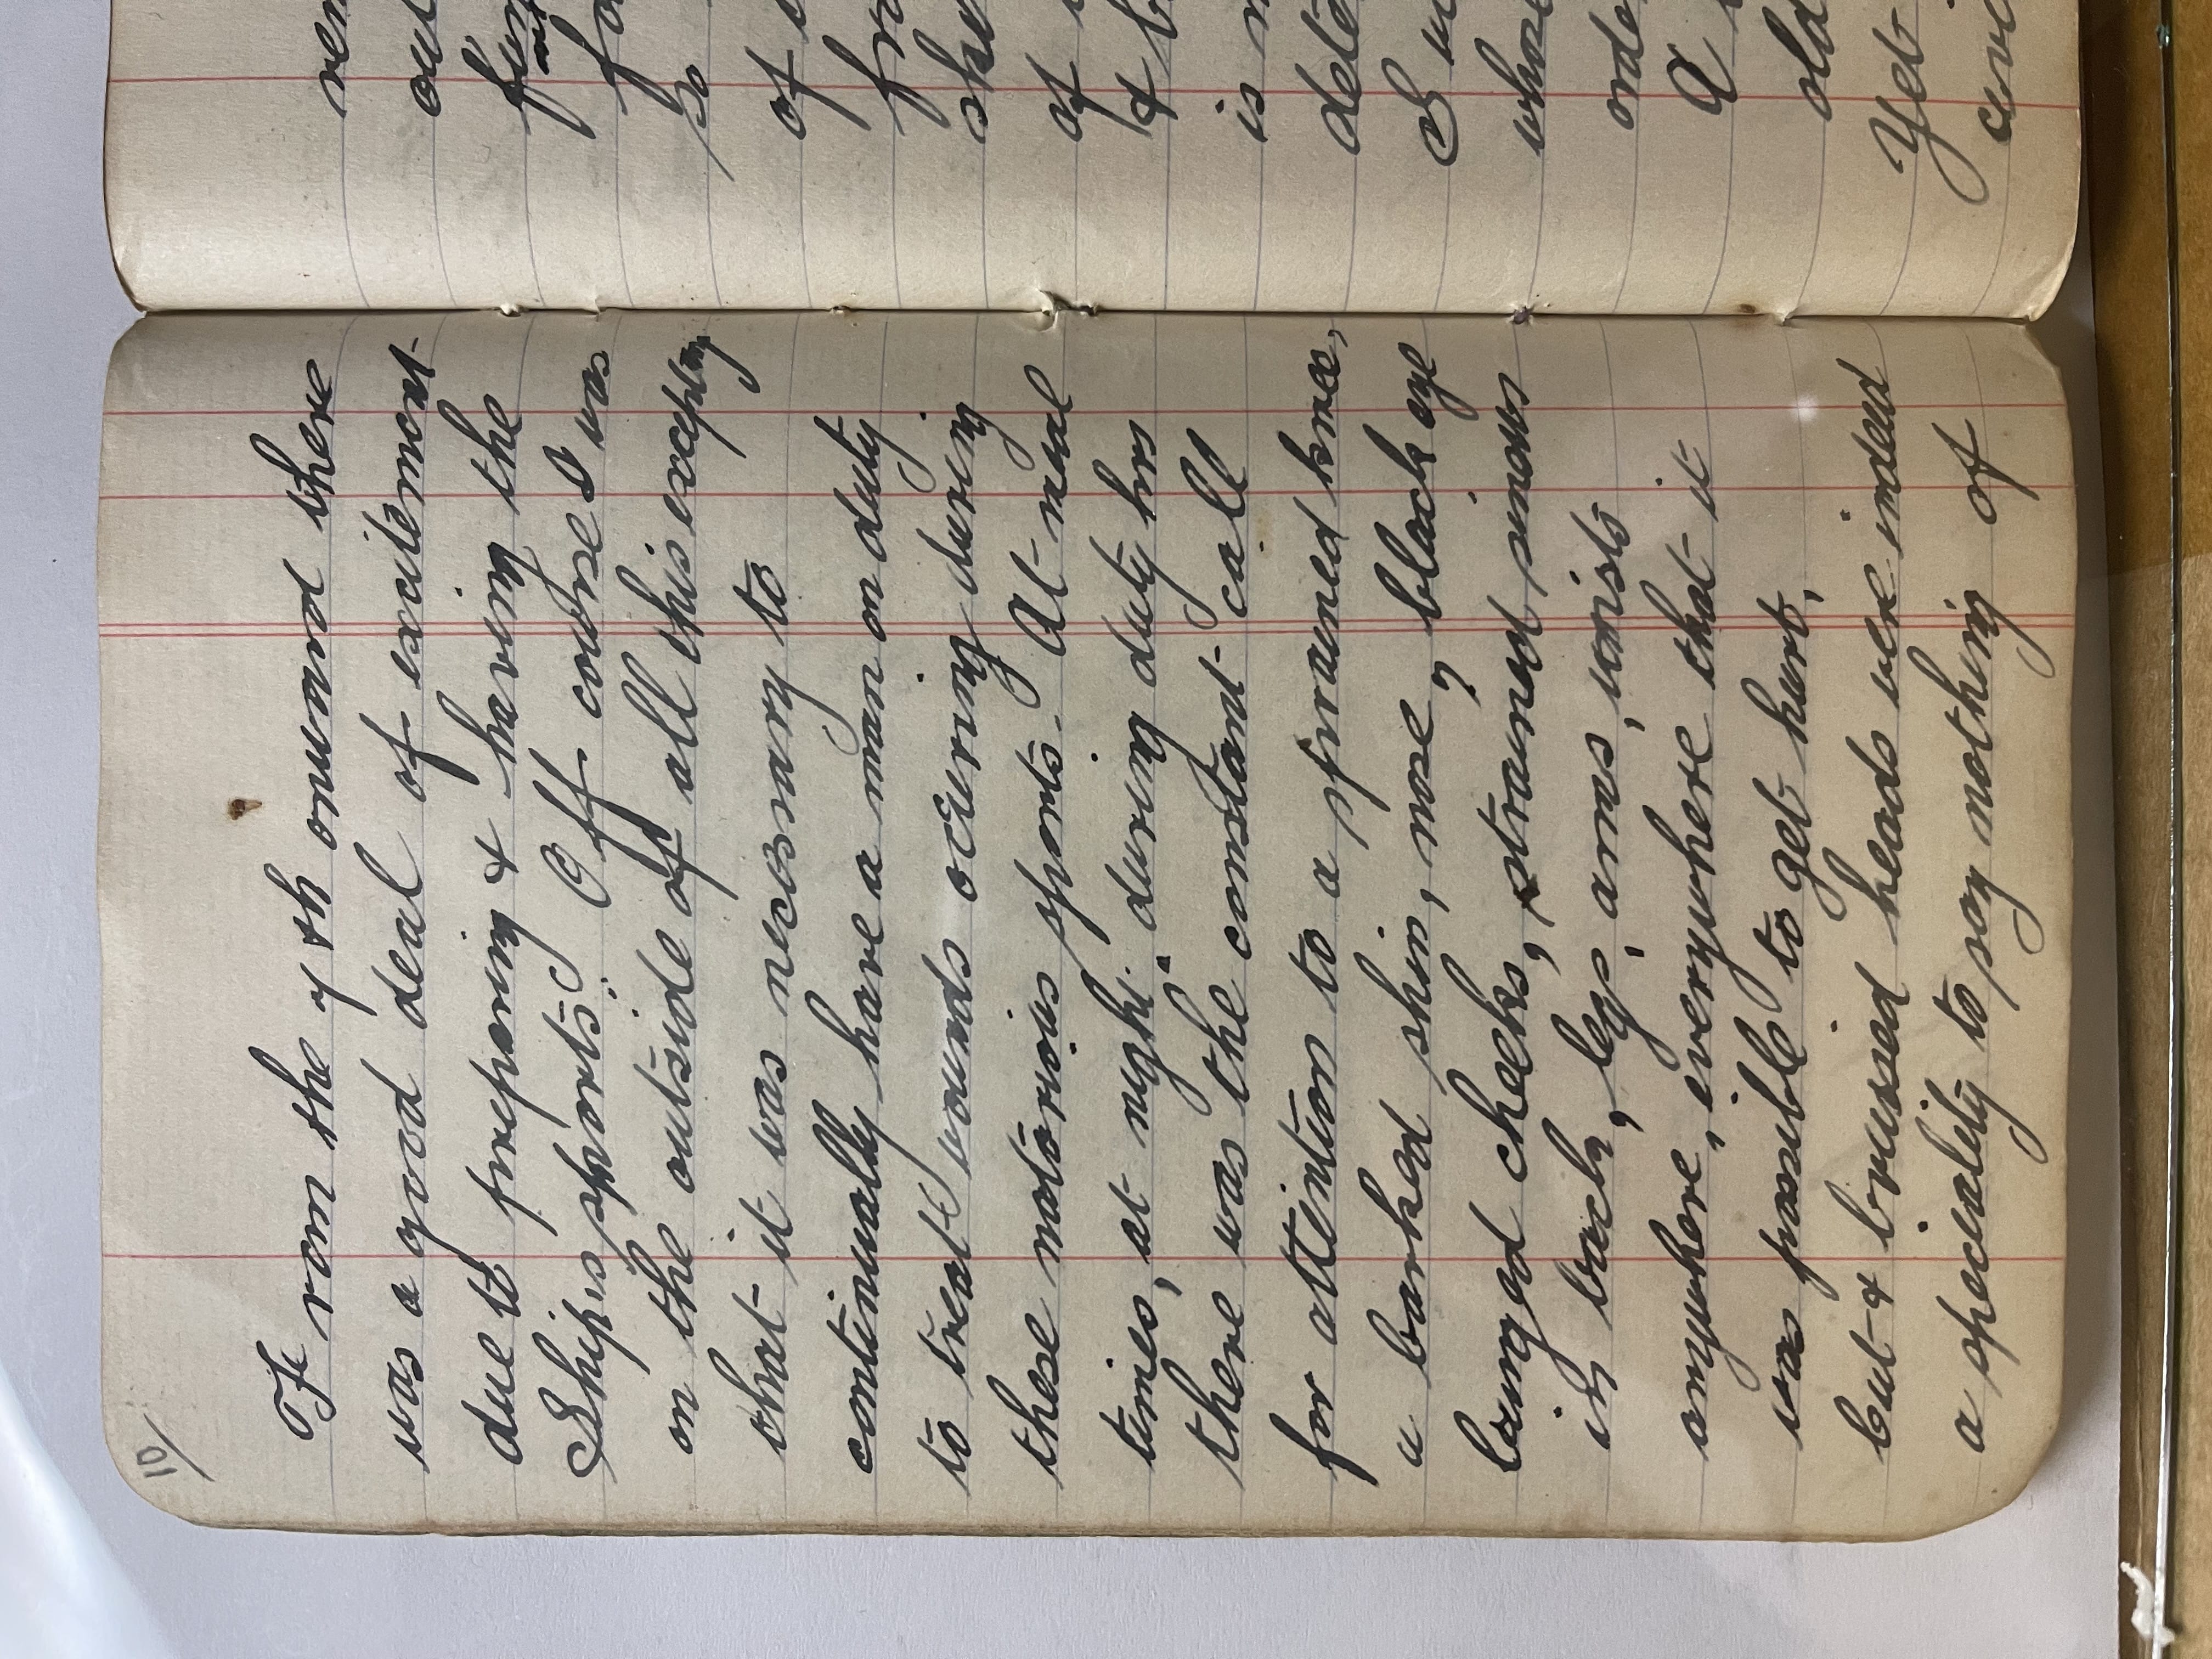 10/
From the 7th onward there
was a good deal of excitement
due to preparing & having the
Ship,s sports". Off course I was
on the outside of all this excepting
that it was necessary to
continually have a man on duty
to treat wounds occuring during
these notorious sports. At meal
times, at night, during duty hrs
there was the constant call
for attention to a sprained knee,
a barked shin, nose, black eye
bunged cheeks, strained sinews
in back, legs, arms, wrists
anywhere, everywhere that it
was possible to get hurt,
but & bruised heads were indeed
a speciality to say nothing of
ren
out
fun
fo
so
of
fro
ske
of
& b
is
dete
I w
whose
orde
A
old
Yet